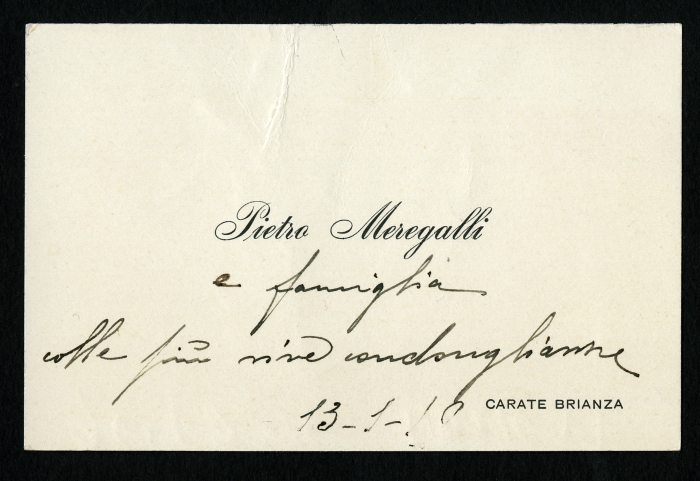 Pietro Meregalli
e famiglia
colle più vive condoglianze
13-1-
CARATE BRIANZA